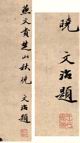 燕文貴楚山秋晚
文治題
晚
文治題